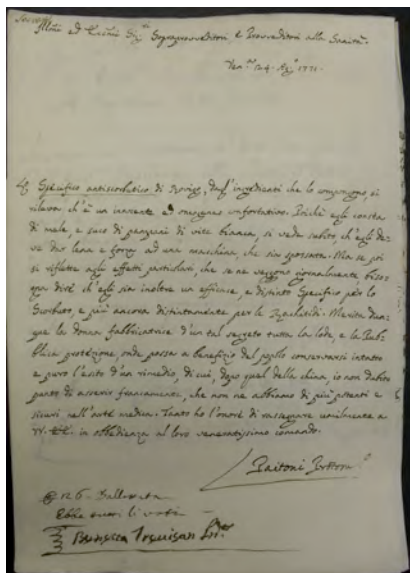 Illmi ed Eccmi Sigri Sopraprovveditori, e Provveditori alla Sanità.
Ven.a 24. Ag.o 1771.
Lo Specifico antiscorbutico di Rovigo, dagl'ingredienti che lo compongono, si
rileva ch'è un innocente ed omogeneo confortativo. Poichè egli consta
di mele, e suco di pampini di vite bianca, si vede subito, ch'egli de-
ve dar lena e forza ad una macchina che sia spossata. Ma se poi
si riflette agli effetti particolari, che se ne veggono giornalmente, biso-
gna dire ch'egli sia inoltre un efficace, e distinto Specifico per lo
Scorbuto, e più ancora distintamente per le Rachitidi. Merita dun-
que la donna fabbricatrice d'un tal segreto tutta la lode, e la Pub-
blica protezione, onde possa a benefizio del popolo conservarsi intatto
e puro l'esito d'un rimedio, di cui, dopo quel della china, io non dubito
punto di asserir francamente, che non ne abbiamo di più potenti e
sicuri nell'arte medica. Tanto ho l'onore di rassegnare umilmente a
VV. EE. in obbedienza al loro veneratissimo comando.
Paitoni
126 - Ballottata
Ebbe